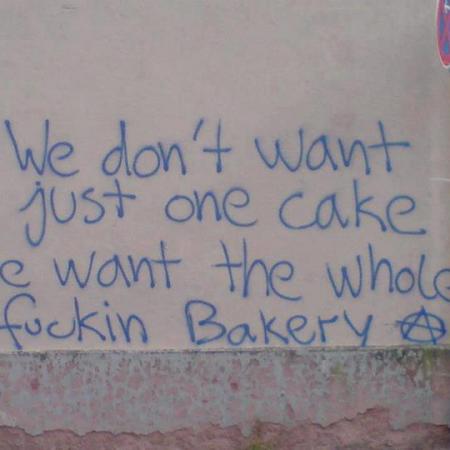 We don't want
just one cake
e want the whole
fuckin Bakery